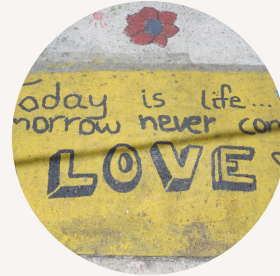 Today is life...
morrow never com
LOVE